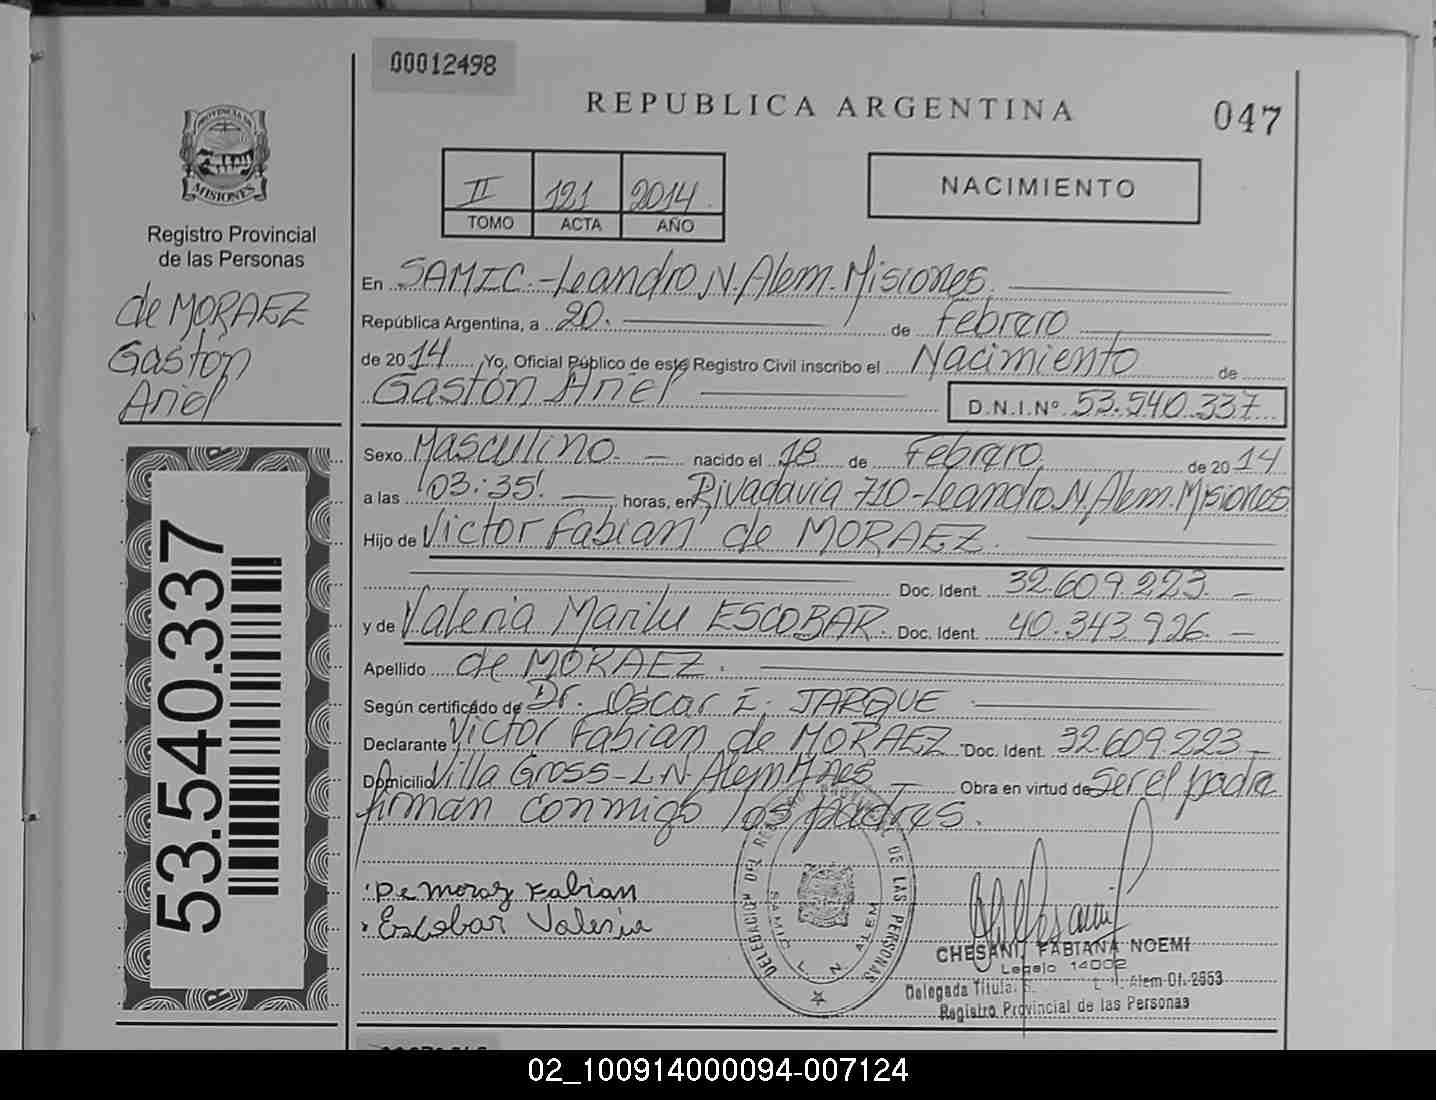 00012498
REPUBLICA ARGENTINA
047
PROVINCIA DE
MISIONES
Registro Provincial
de las Personas
II 121 2014
TOMO ACTA AÑO
NACIMIENTO
de MORAEZ
Gastón
Ariel
En SAMIC.-Leandro N. Alem. Misiones.
República Argentina, a 20. de Febrero
de 2014 Yo, Oficial Público de este Registro Civil inscribo el Nacimiento de
Gastón Ariel D.N.I.Nº 53.540.337
Sexo Masculino. nacido el 18 de Febrero. de 2014
a las 03:35'. horas, en Rivadavia 710-Leandro N. Alem. Misiones
Hijo de Victor Fabian de MORAEZ.
Doc. Ident. 32.609.223.
y de Valeria Marilu ESCOBAR. Doc. Ident. 40.343.926.
Apellido de MORAEZ.
Según certificado de Dr. Oscar E. JARQUE
Declarante Victor Fabian de MORAEZ Doc. Ident. 32.609.223
Domicilio Villa Gross-L.N. Alem Mnes Obra en virtud de Ser el padre
firman conmigo los padres.
De moraez Fabian
Escobar Valeria
53.540.337
DELEGACION DEL REGISTRO PROVINCIAL DE LAS PERSONAS
SAMIC L. N. ALEM
CHESANI, FABIANA NOEMI
Legajo 14002
Delegada Titular Alem Of. 2653
Registro Provincial de las Personas
02_100914000094-007124